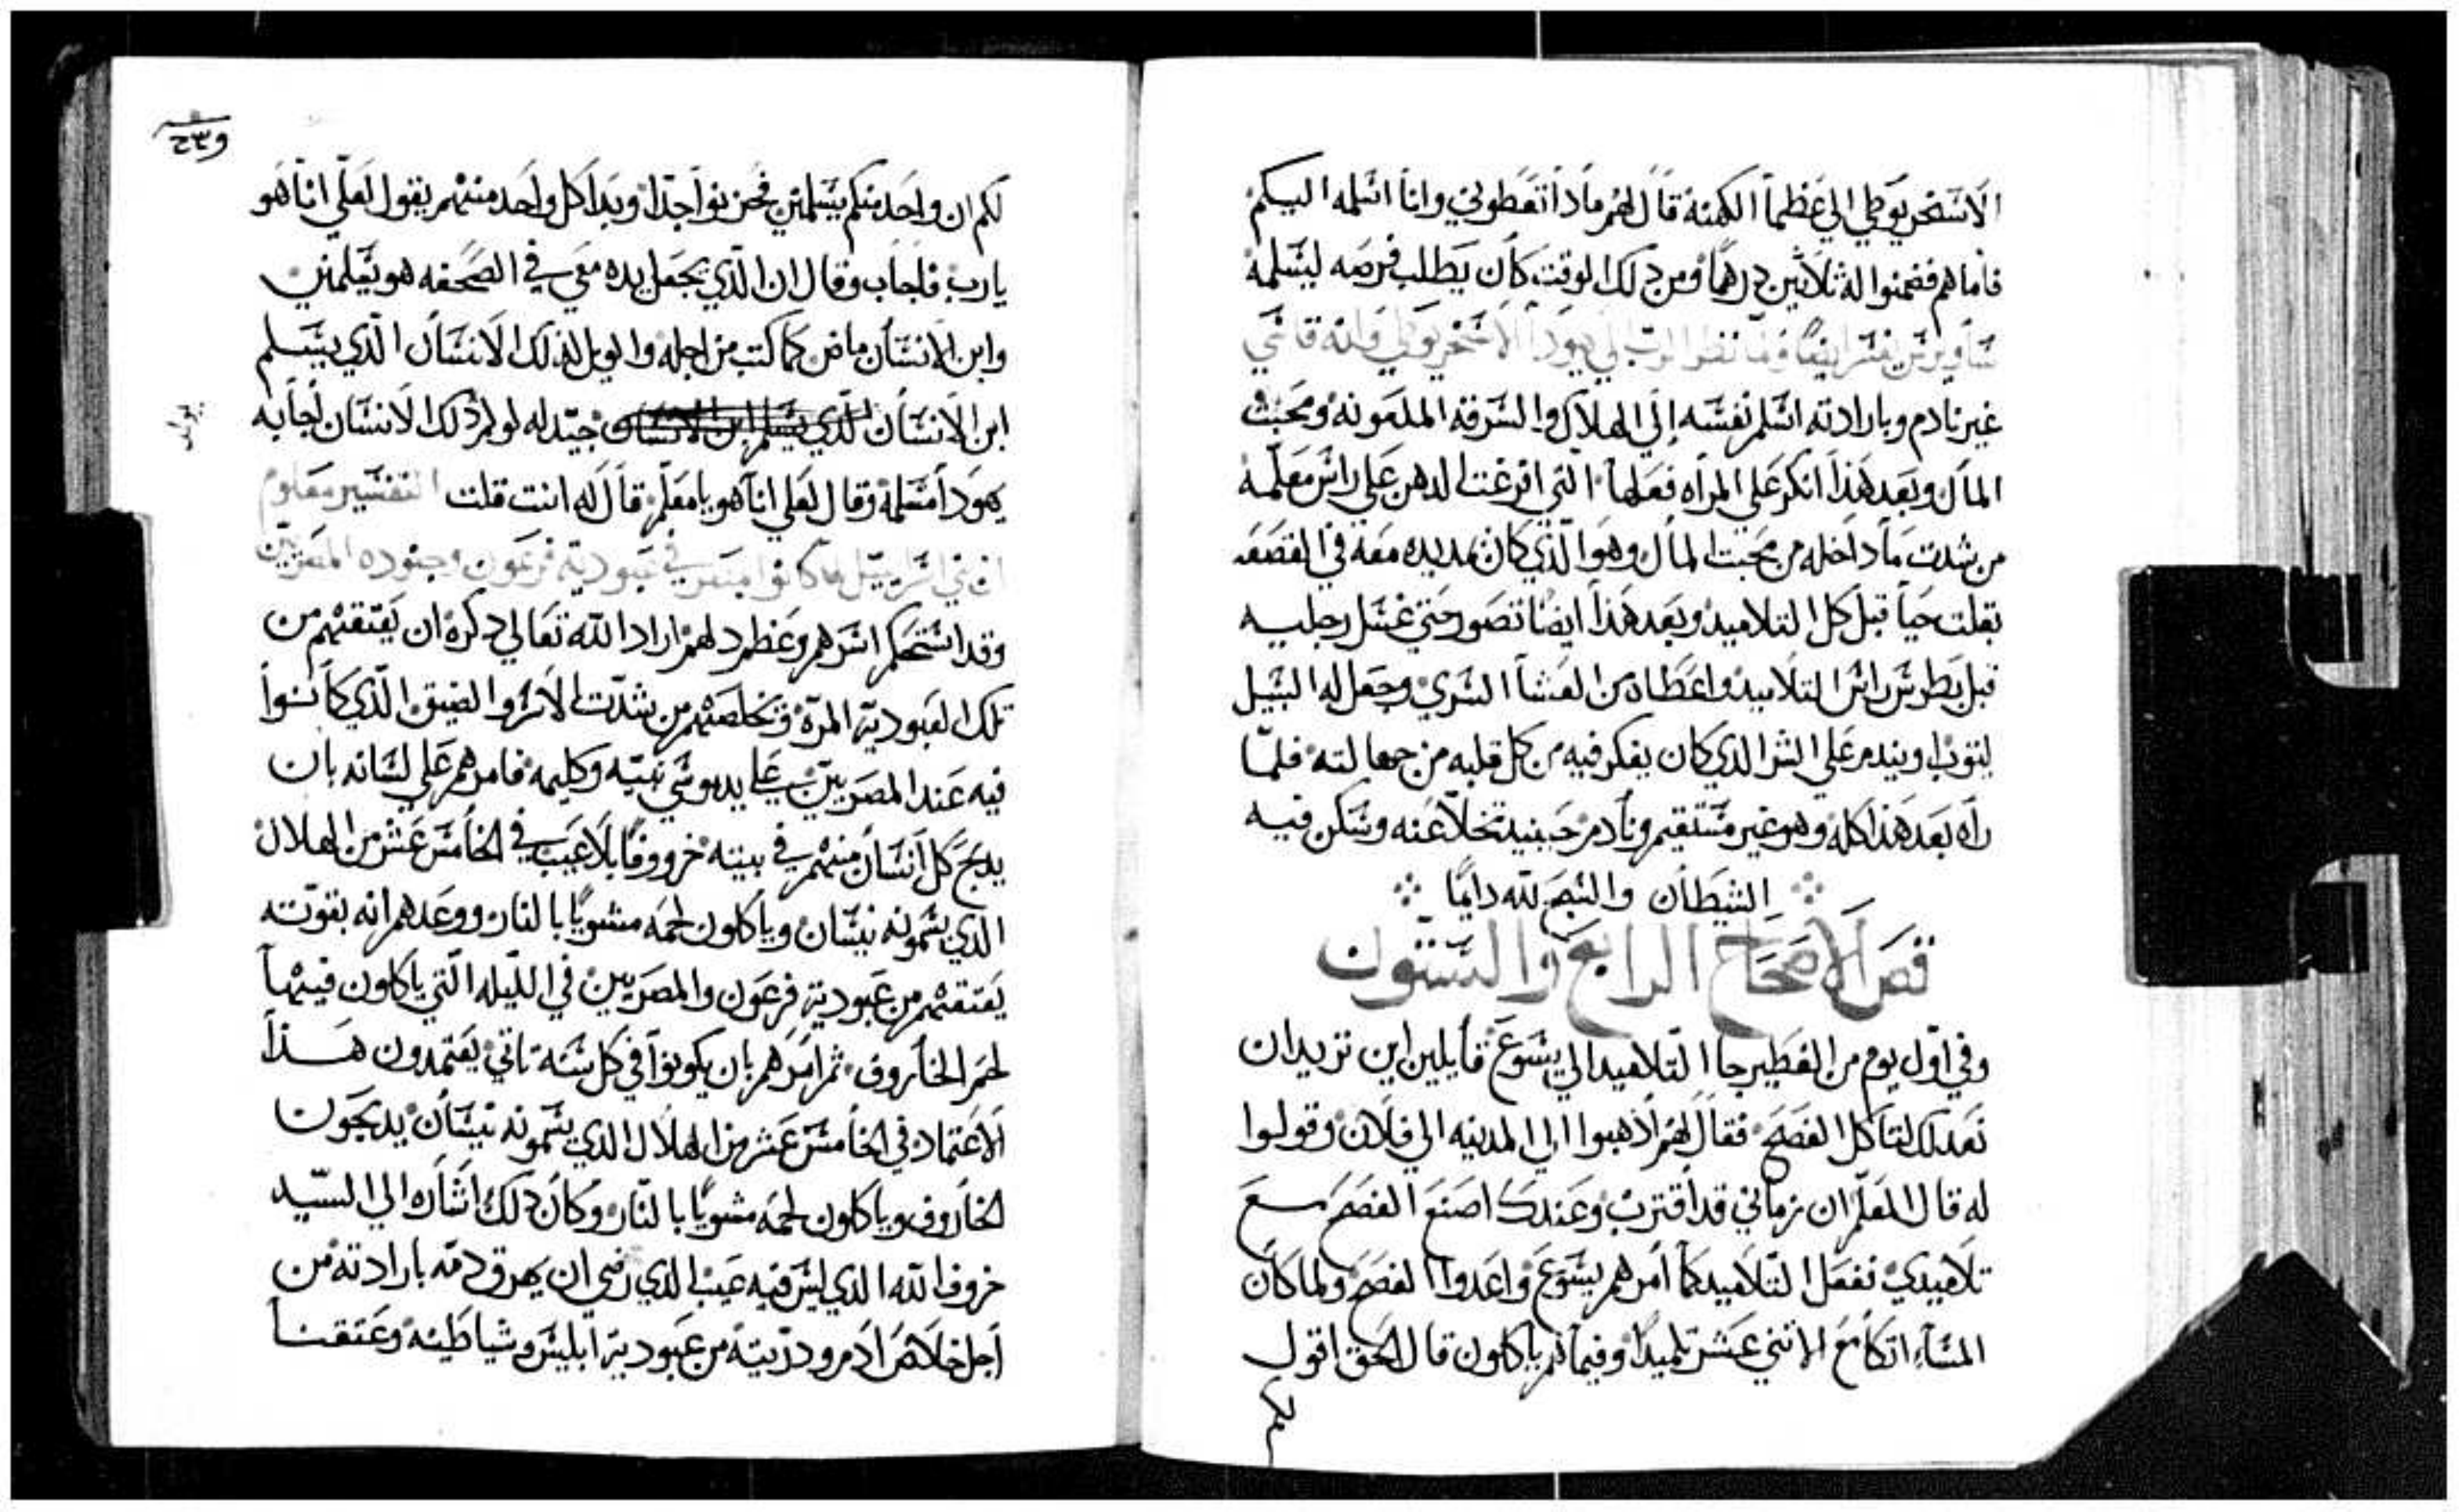 الاسخريوطي الي عظما الكهنة قال لهم مادا تعطوني وانا اسلمه اليكم
فاما هم فضمنوا له ثلاثين درهما ومن دلك الوقت كان يطلب فرصه ليسلمه
الرب الي يهودا الاسخريوطي
غير نادم وبارادته اسلم نفسه إلي الهلاك والسرقة الملعونه ومحبت
المال وبعد هذا انكر علي المراه فعلها التي افرغت الدهن علي راس معلمه
من شدت ما داخله من محبت المال وهو الذي كان يمد يده معه في القصعه
بقلت حيا قبل كل التلاميد وبعد هذا ايضا تصور حتي غسل رجليه
قبل بطرس راس التلاميد واعطاه من العشا السري وجعل له السيل
ليتوب ويندم علي الشر الدي كان يفكر فيه من كل قلبه من جهالته فلما
راه بعد هذا كله وهو غير مستقيم ونادم حينيد تخلا عنه وسكن فيه
الشيطان والسبح لله دايما
فص الاصحاح الرابع والستون
وفي اول يوم من الفطير جا التلاميد الي يسوع قايلين اين تريد ان
نعد لك لتاكل الفصح فقال لهم ادهبوا الي المدينه الي فلان وقولوا
له قال المعلم ان زماني قد اقترب وعندك اصنع الفصح مع
تلاميدي ففعل التلاميد كما امرهم يسوع واعدوا الفصح ولما كان
المساء اتكا مع الاثني عشر تلميدا وفيما هم ياكلون قال الحق اقول
لكم
لكم ان واحد منكم يسلمني فحزنوا جدا وبدا كل واحد منهم يقول لعلي انا هو
يارب فاجاب وقال ان الذي يجعل يده معي في الصحفه هو يسلمني
وابن الانسان ماض كما كتب من اجله والويل لذلك الانسان الذي يسلم
ابن الانسان الذي يسلم ابن الانسان جيد له لو لم يولد دلك الانسان اجابه
يهودا مسلمه وقال لعلي انا هو يا معلم قال له انت قلت التفسير معلوم
ان بني اسراييل لما كانوا بمصر في عبودية فرعون وجنوده المصريين
وقد استحكم اسرهم وعظم دلهم اراد الله تعالي دكره ان يعتقهم من
تلك العبودية المرة وتخلصهم من شدت الاسر والضيق الذي كانوا
فيه عند المصريين علي يد موسي نبيه وكليمه فامرهم علي لسانه بان
يدبح كل انسان منهم في بيته خروفا بلا عيب في الخامس عشر من الهلال
الدي يسمونه نيسان وياكلون لحمه مشويا بالنار ووعدهم انه بقوته
يعتقهم من عبودية فرعون والمصريين في الليله التي ياكلون فيها
لحم الخاروف ثم امرهم بان يكونوا في كل سنة تاتي يعتمدون هذا
الاعتماد في الخامس عشر من الهلال الدي يسمونه نيسان يدبحون
الخاروف وياكلون لحمه مشويا بالنار وكان دلك اشاره الي السيد
خروف الله الدي ليس فيه عيب الدي رضي ان يهرق دمه بارادته من
اجل خلاص ادم ودريته من عبودية ابليس وشياطينه وعتقنا